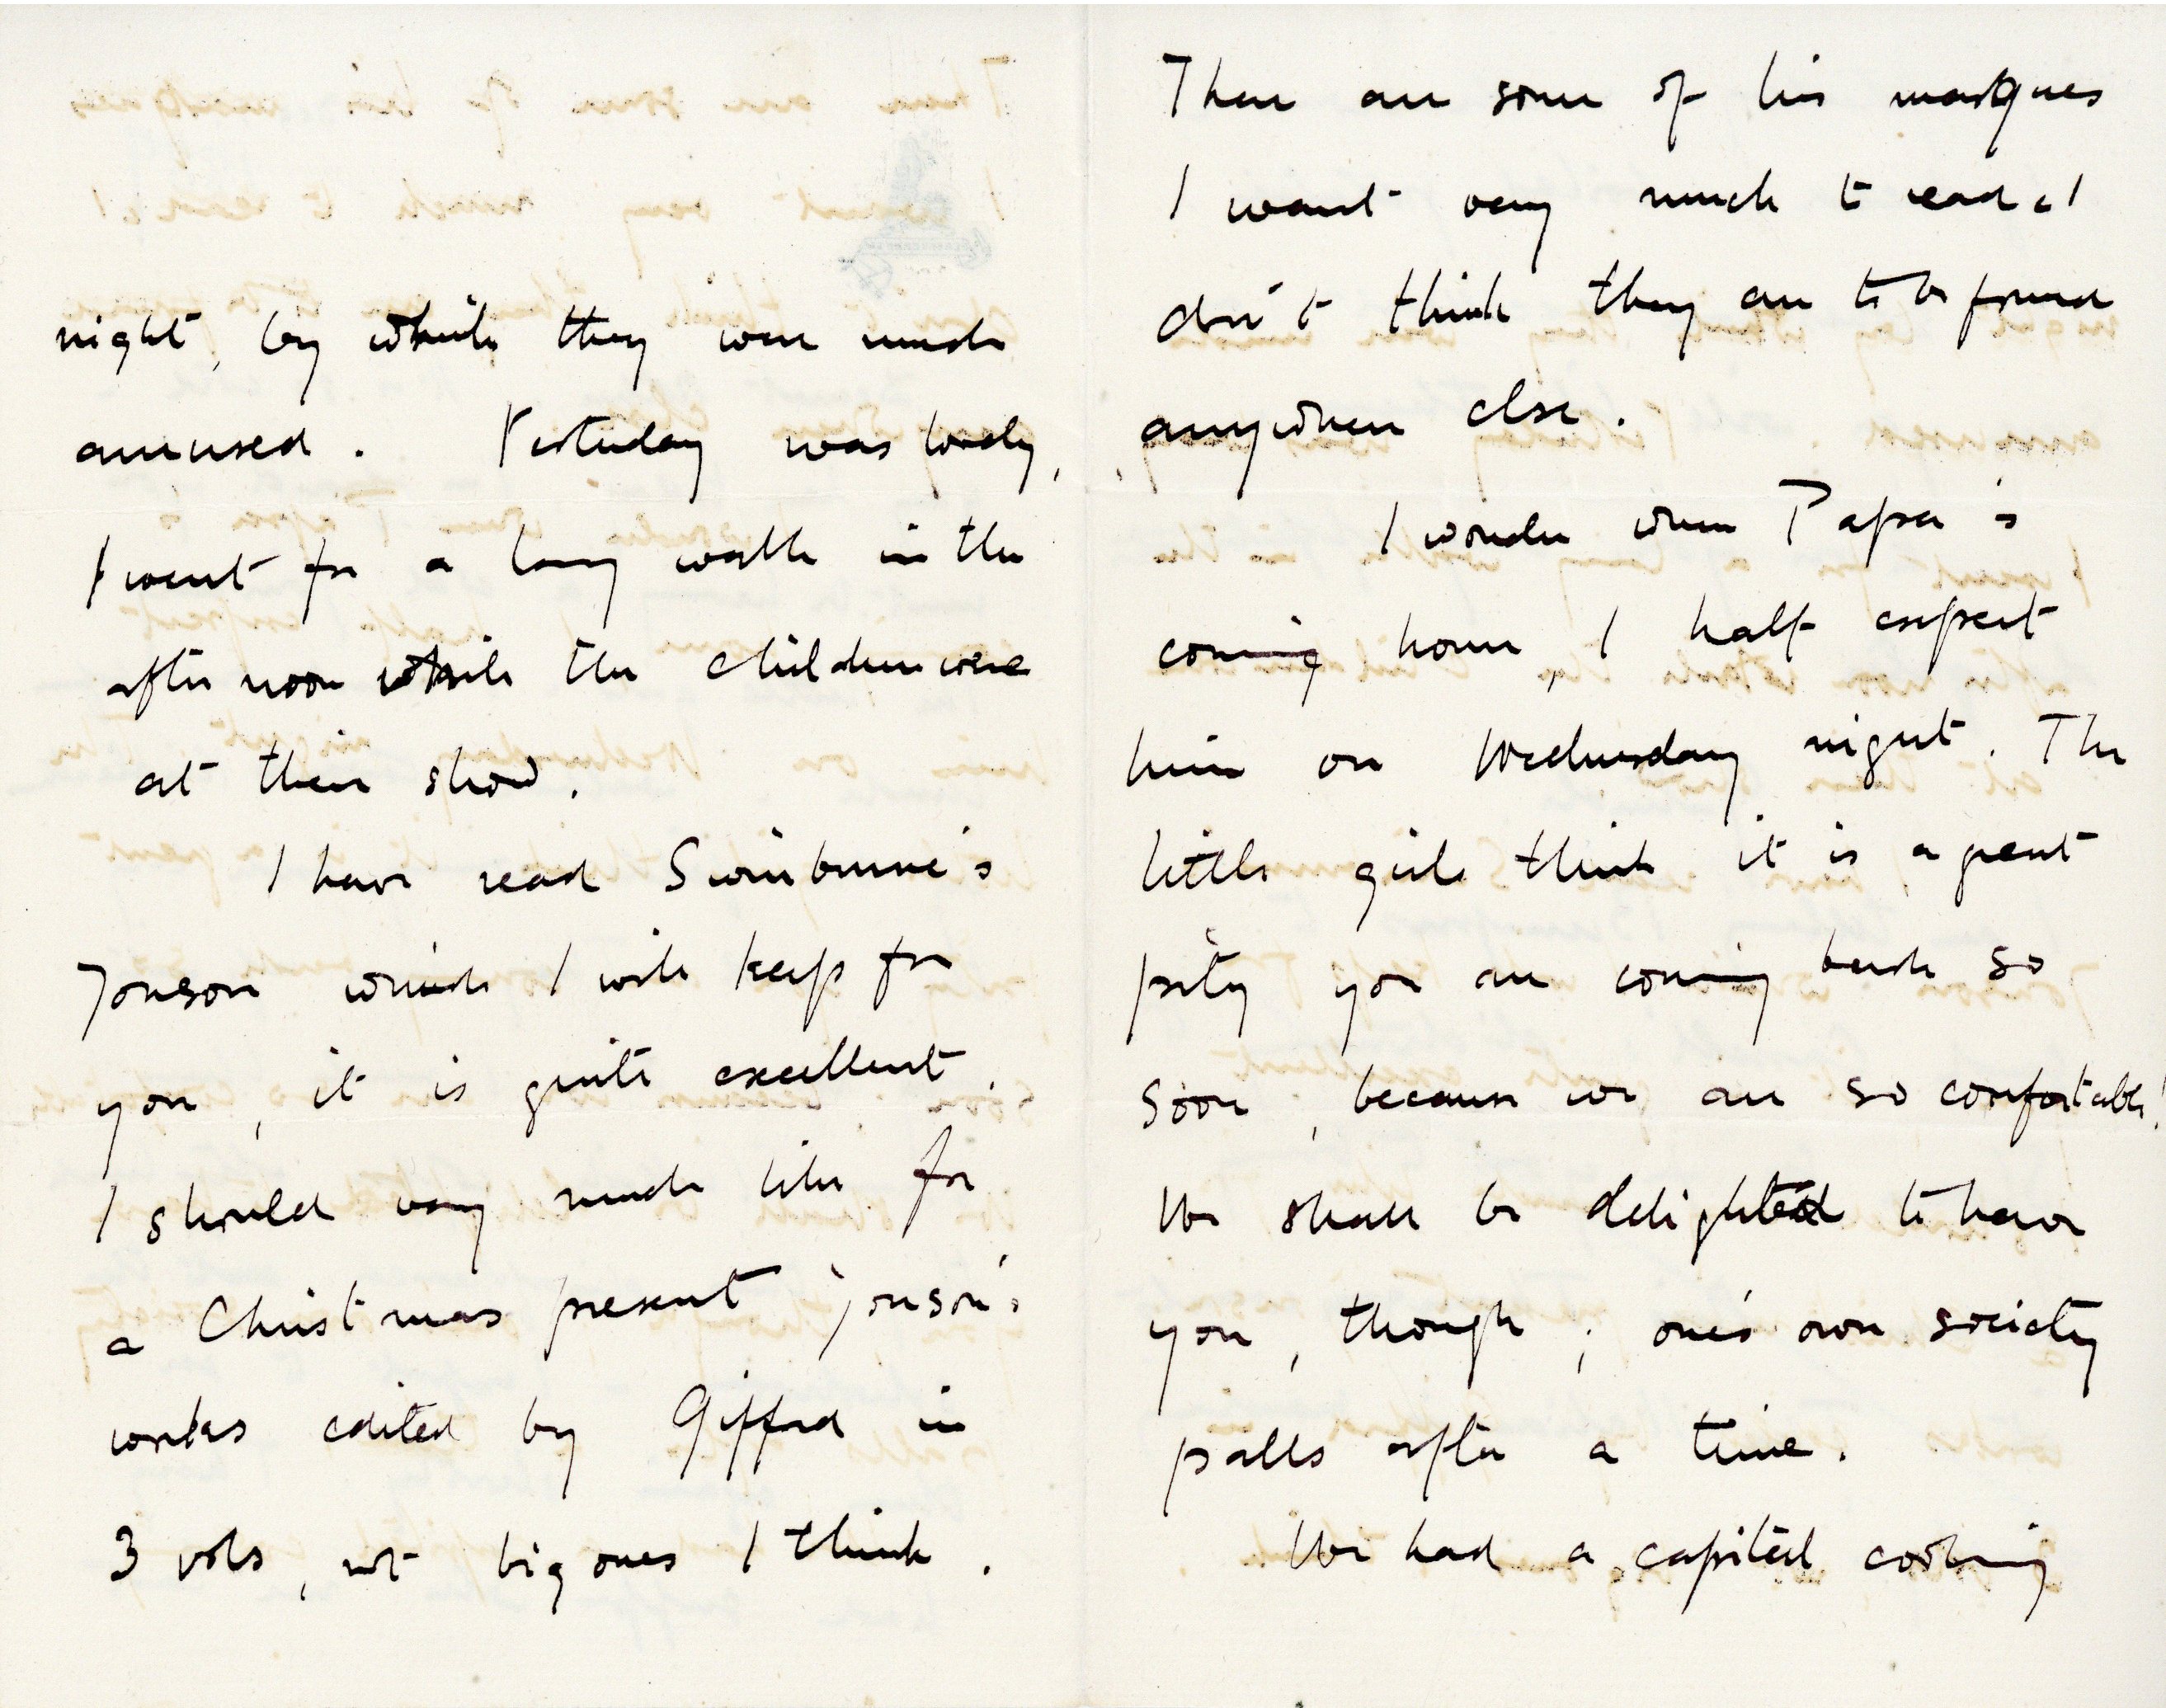 night, by which they were much
amused. Yesterday was lovely,
I went for a long walk in the
afternoon while the children were
at their show.
I have read Swinburne's
Jonson which I will keep for
you, it is quite excellent.
I should very much like for
a Christmas present Jonson's
works edited by Gifford in
3 vols, not big ones I think.
There are some of his masques
I want very much to read & I
don't think they are to be found
anywhere else.
I wonder when Papa is
coming home, I half expect
him on Wednesday night. The
little girls think it is a great
pity you are coming back so
soon, because we are so comfortable!
We shall be delighted to have
you, though; one's own society
palls after a time.
We had a capital cooking